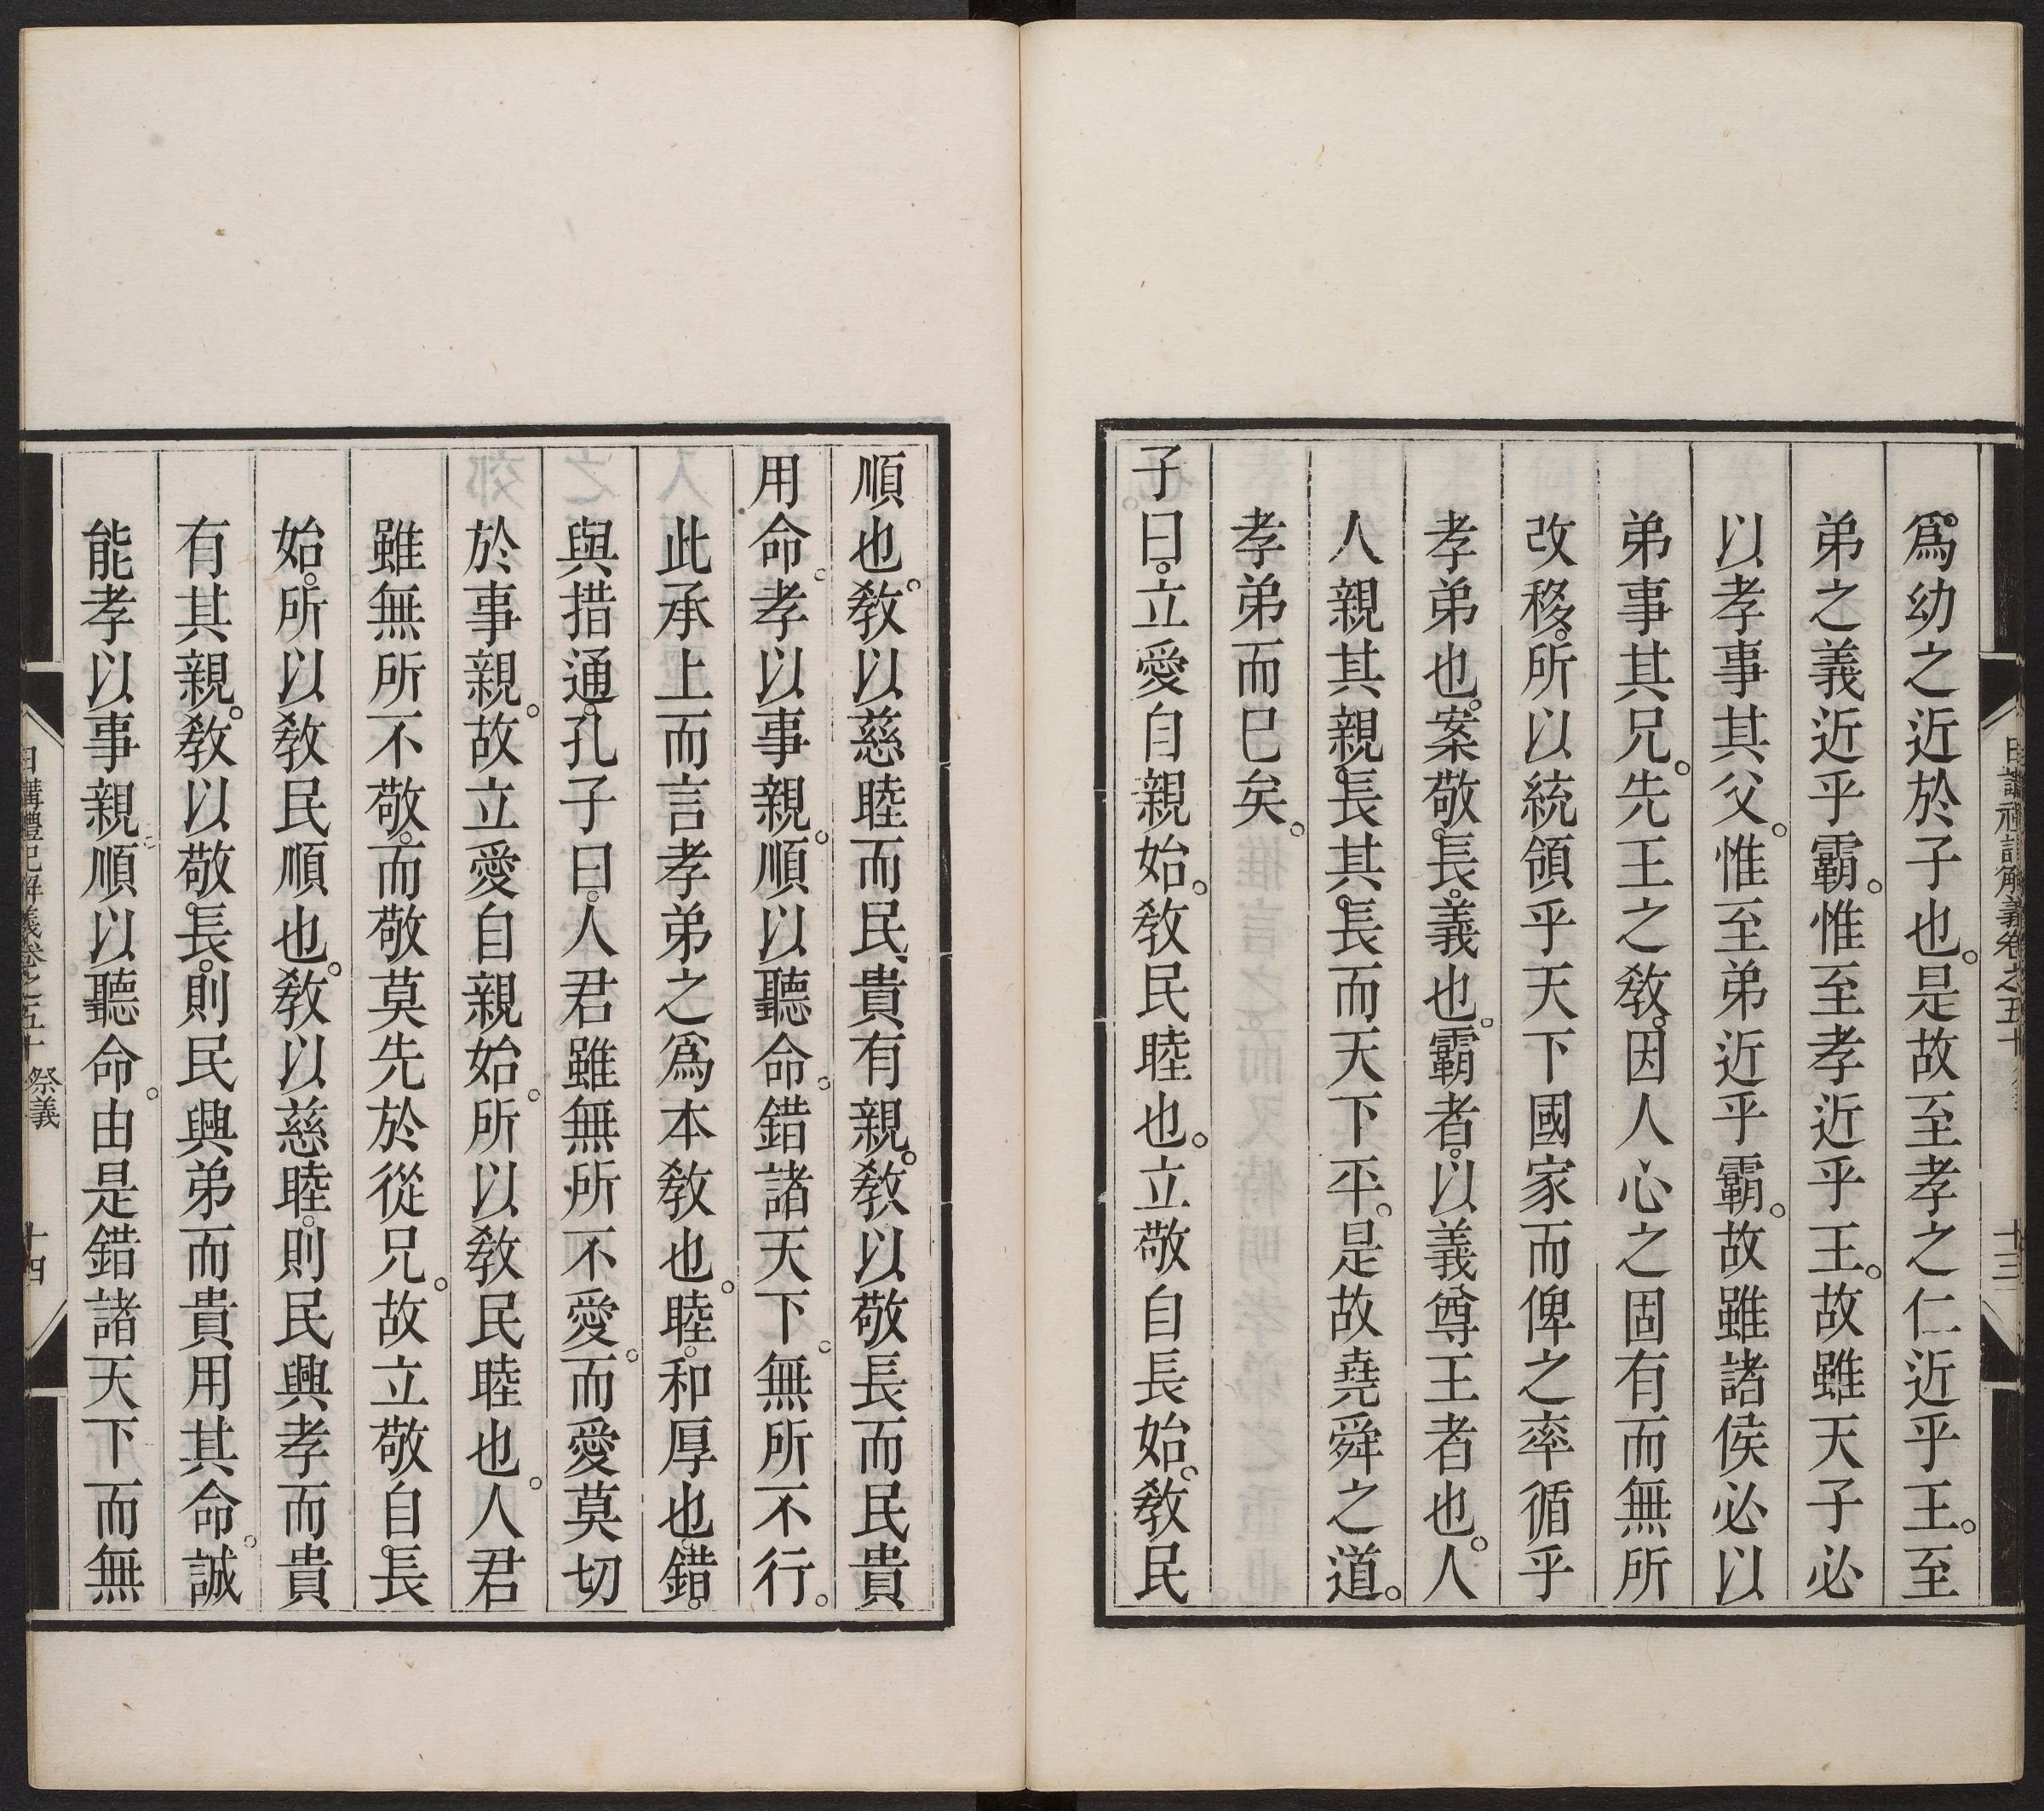 爲幼之近於子也。是故至孝之仁近乎王。至
弟之義近乎霸。惟至孝近乎王。故雖天子必
以孝事其父。惟至弟近乎霸。故雖諸侯必以
弟事其兄。先王之敎。因人心之固有而無所
改移。所以統領乎天下國家而俾之率循乎
孝弟也。案敬。長。義也。霸者。以義尊王者也。人
人親其親。長其。長而天下平。是故堯舜之道。
孝弟而已矣。
子曰。立愛自親始。敎民睦也。立敬自長始。敎民
日講禮記解義卷之五十
十三
順也。敎以慈睦而民貴有親。敎以敬長而民貴
用命。孝以事親。順以聽命。錯諸天下。無所不行。
此承上而言孝弟之爲本敎也。睦。和厚也。錯。
與措通。孔子曰。人君雖無所不愛。而愛莫切
於事親。故立愛自親始。所以敎民睦也。人君
雖無所不敬。而敬莫先於從兄。故立敬自。長
始。所以敎民順也。敎以慈睦。則民興孝而貴
有其親。敎以敬。長。則民興弟而貴用其命。誠
能孝以事親。順以聽命。由是錯諸天下而無
日講禮記解義卷之五十 祭義
十四